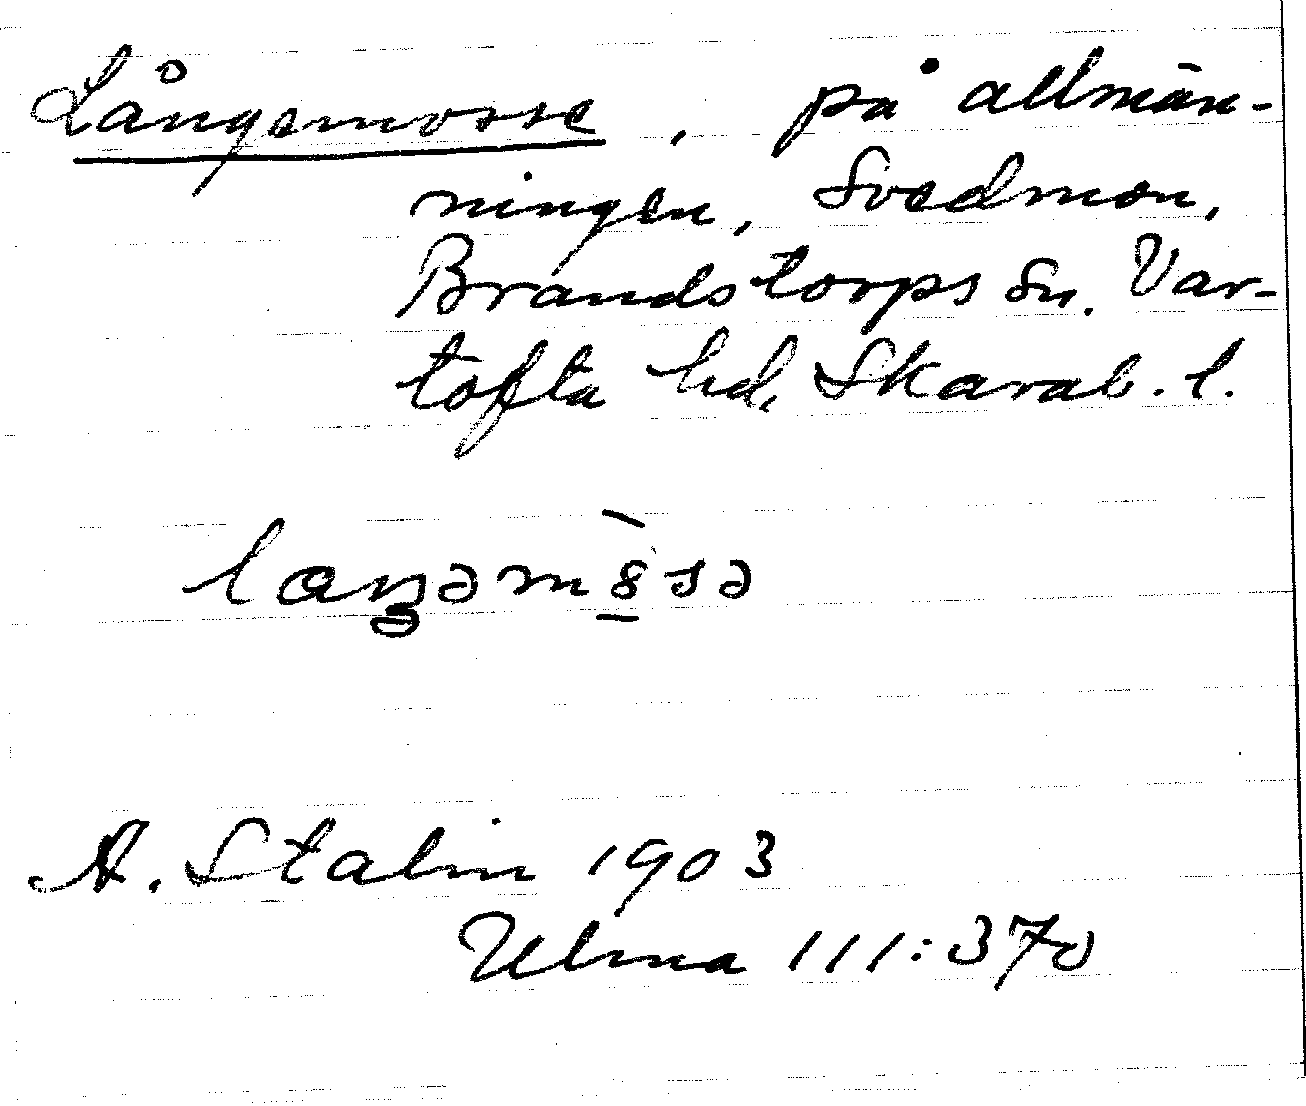 Långemosse, på allmän-
ningen, Svedmon,
Brandstorps sn. Var-
tofta hd, Skarab. l.
A. Stalin 1903
Ulma 111:370